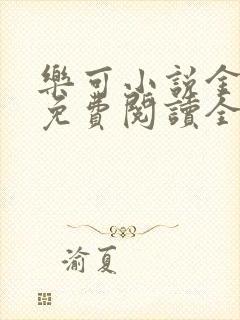 樂可小說全
免費閱讀全
渝夏